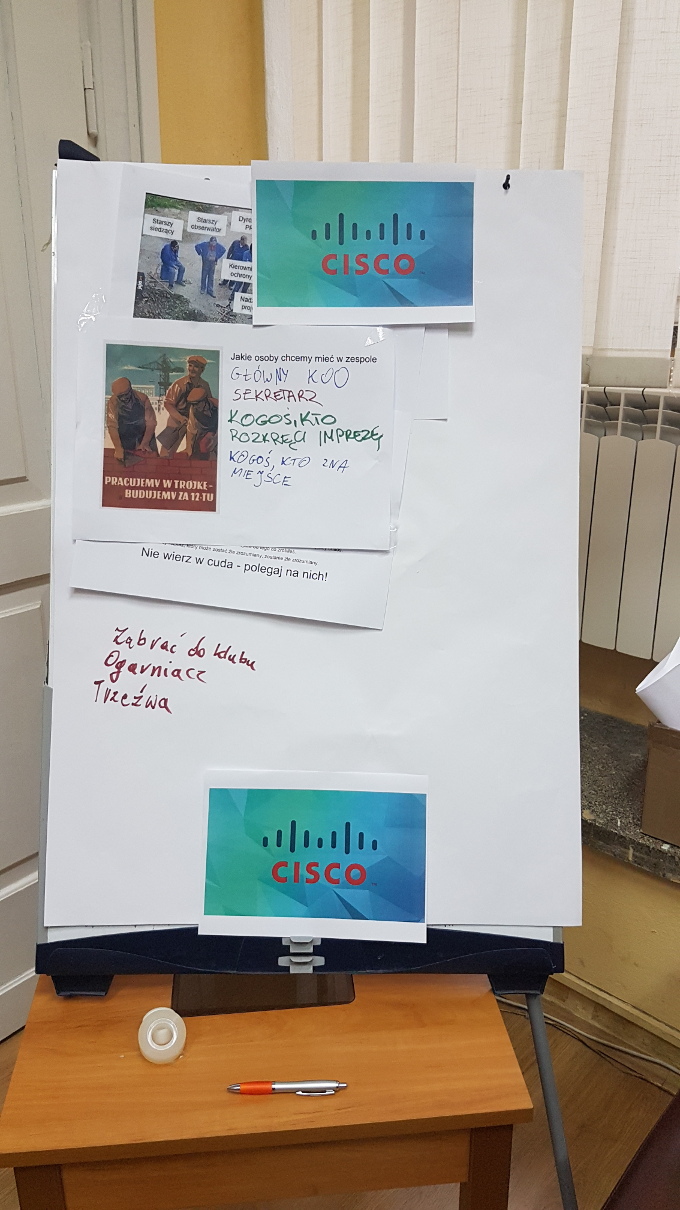 Starszy siedzący
Starszy obserwator
CISCO
Jakie osoby chcemy mieć w zespole
GŁÓWNY KOO
SEKRETARZ
KOGOŚ, KTO
ROZKRĘCI IMPREZĘ
KOGOŚ, KTO ZNA
MIEJSCE
PRACUJEMY W TRÓJKE -
BUDUJEMY ZA 12-TU
Nie wierz w cuda - polegaj na nich!
Ząbrać do klubu
Ogarniacz
Trzeźwa
CISCO